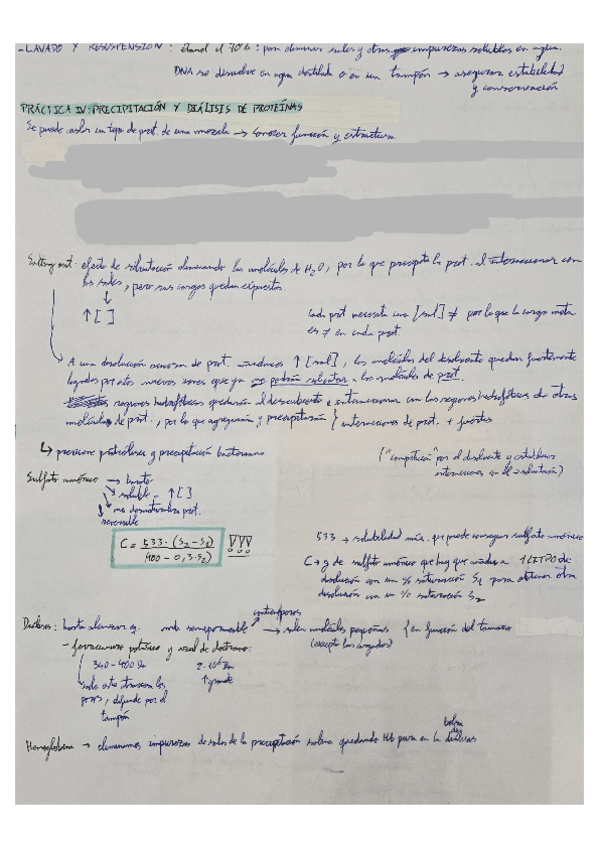 - LAVADO Y RESUSPENSIÓN: etanol al 70%: para eliminar sales y otras impurezas solubles en agua.
DNA se disuelve en agua destilada o en un tampón → asegurar estabilidad
y conservación
PRÁCTICA IV: PRECIPITACIÓN Y DIÁLISIS DE PROTEÍNAS
Se puede aislar un tipo de prot. de una mezcla → conocer función y estructura
Salting out: efecto de eliminando las moléculas de H2O, por lo que precipita la prot. al interaccionar con
las sales, pero sus cargas quedan expuestas.
↑[ ]
Cada prot necesita una [sal] ≠ por lo que la carga neta
es ≠ en cada prot.
A una disolución acuosa de prot. ↑[sal], las moléculas del disolvente quedan fuertemente
ligadas por estos nuevos iones que ya no podrán solvatar a las moléculas de prot.
regiones hidrofóbicas quedarán al descubierto e interaccionar con las regiones hidrofóbicas de otras
moléculas de prot., por lo que agregarán y precipitarán } interacciones de prot. + fuertes
↳ previene proteólisis y precipitación bacteriana
("competición" por el disolvente y establecer
interacciones en la solvatación)
Sulfato amónico → barato
soluble - ↑[ ]
no desnaturaliza prot.
reversible
C = 533 · (S2 - S1) / 100 - 0,3 · S2
533 → solubilidad máx. que puede conseguir sulfato amónico
C → g de sulfato amónico que hay que añadir a 1 LITRO de
disolución con un % saturación S1 para obtener otra
disolución con un % saturación S2
Diálisis: hasta alcanzar eq. semipermeable → salen moléculas pequeñas { en función del tamaño
contraiones
(excepto los cargados)
- ferrocianuro potásico y azul de dextrano:
340-400 Da
2·10⁶ Da
↑ grande
solo este traviesa los
poros, difunde por el
tampón
Hemoglobina → eliminamos impurezas de sales de la precipitación salina quedando Hb pura en la bolsa de diálisis